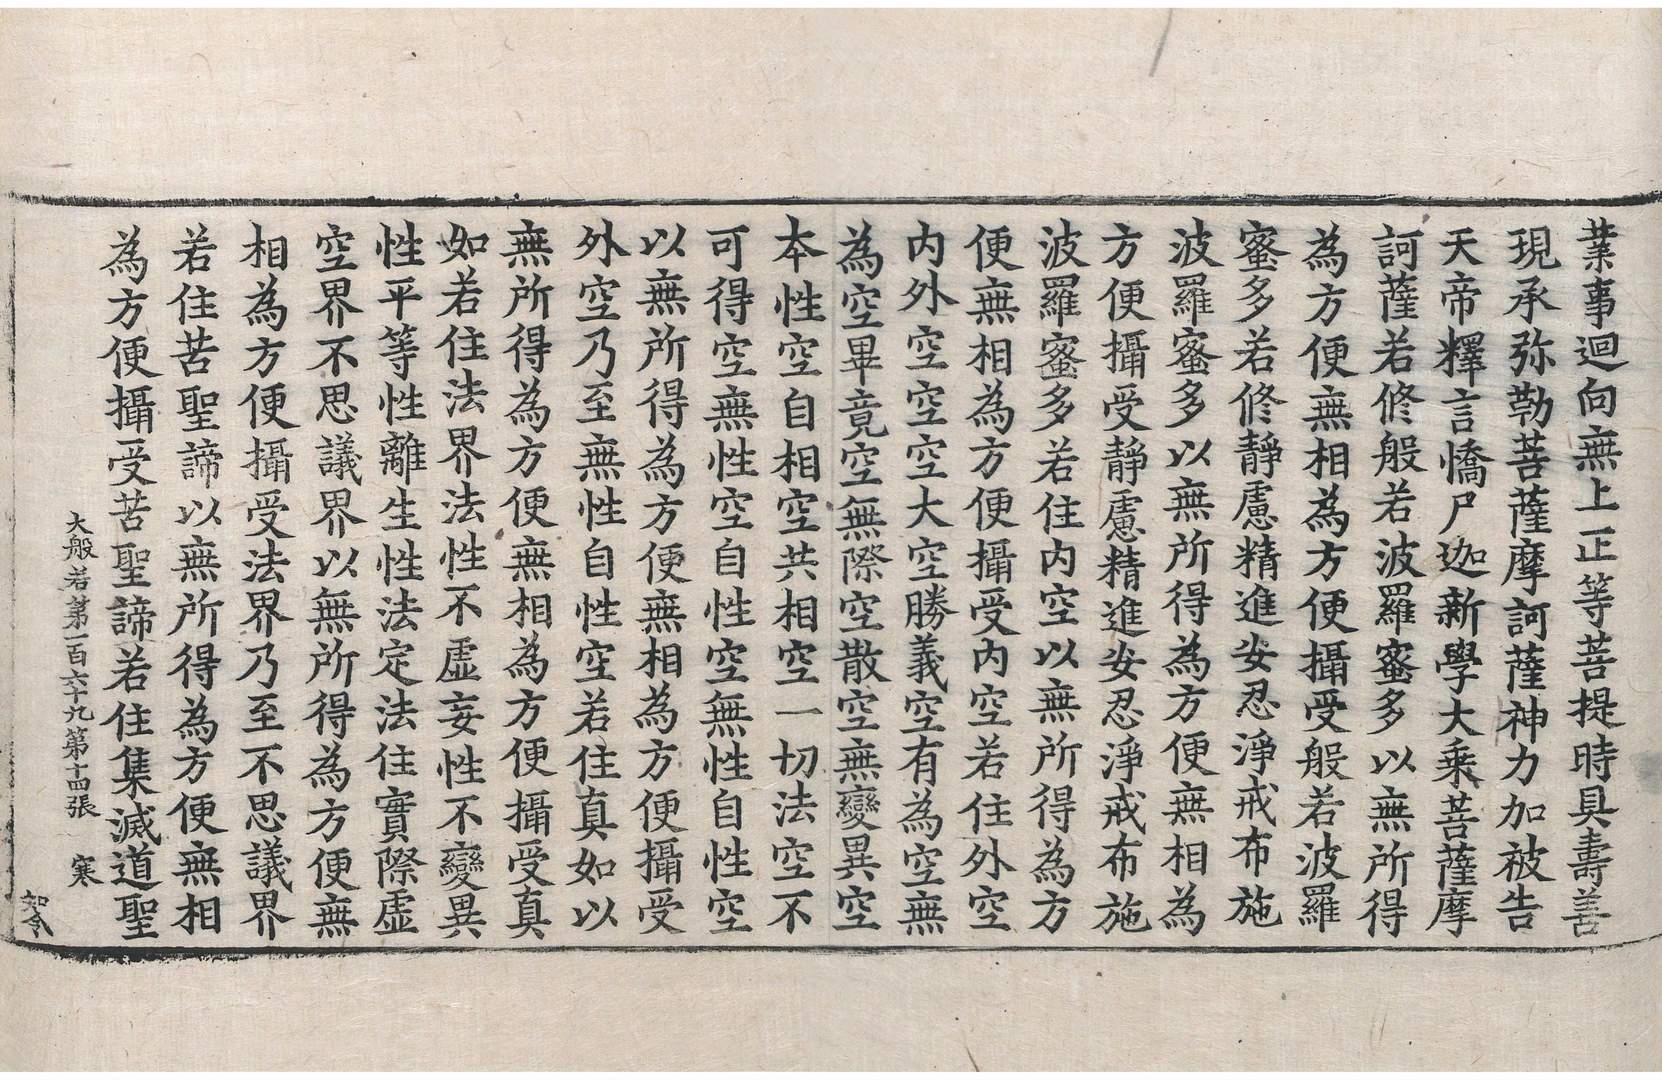 業事迴向無上正等菩提時具壽善
現承弥勒菩薩摩訶薩神力加被告
天帝釋言憍尸迦新學大乘菩薩摩
訶薩若修般若波羅蜜多以無所得
為方便無相為方便攝受般若波羅
蜜多若修靜慮精進安忍淨戒布施
波羅蜜多以無所得為方便無相為
方便攝受靜慮精進安忍淨戒布施
波羅蜜多若住内空以無所得為方
便無相為方便攝受内空若住外空
内外空空空大空勝義空有為空無
為空畢竟空無際空散空無變異空
本性空自相空共相空一切法空不
可得空無性空自性空無性自性空
以無所得為方便無相為方便攝受
外空乃至無性自性空若住真如以
無所得為方便無相為方便攝受真
如若住法界法性不虛妄性不變異
性平等性離生性法定法住實際虛
空界不思議界以無所得為方便無
相為方便攝受法界乃至不思議界
若住苦聖諦以無所得為方便無相
為方便攝受苦聖諦若住集滅道聖
大般若第一百六十九第十四張 寒